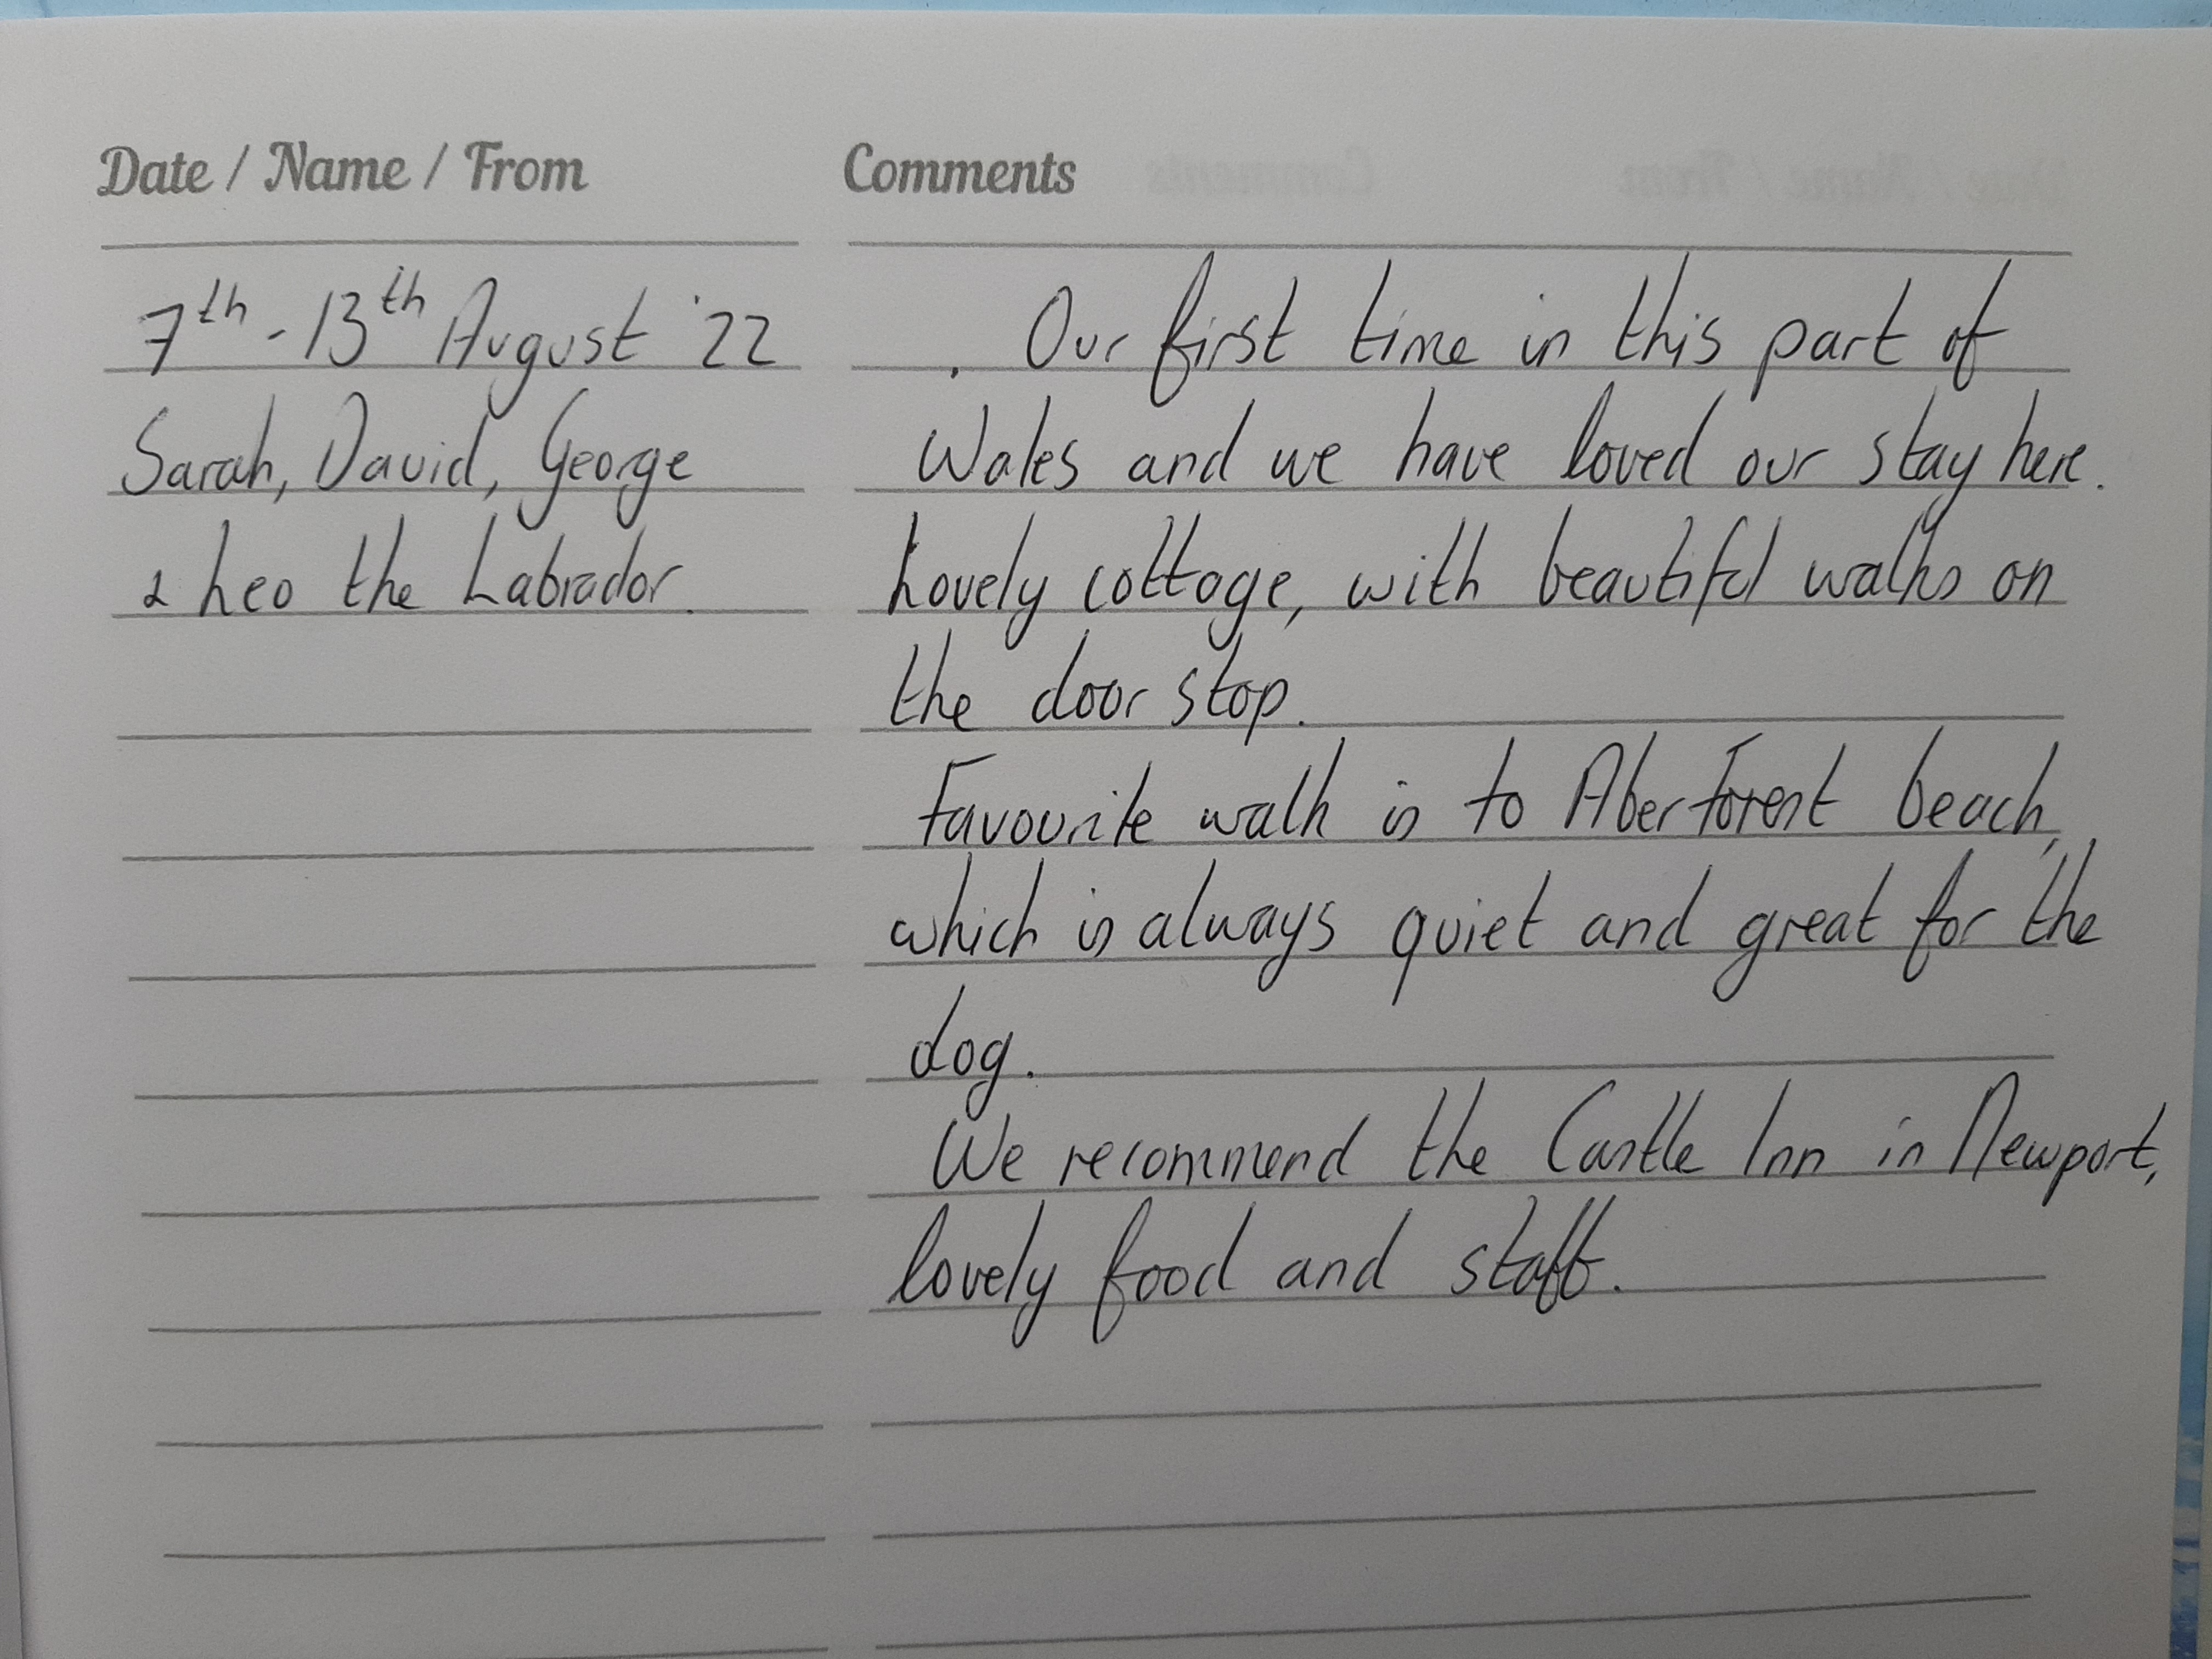 Date / Name / From
Comments
7th - 13th August '22
Sarah, David, George
& Leo the Labrador.
. Our first time in this part of
Wales and we have loved our stay here.
Lovely cottage, with beautiful walks on
the door stop.
Favourite walk is to Aber Forest beach,
which is always quiet and great for the
dog.
We recommend the Castle Inn in Newport,
lovely food and staff.